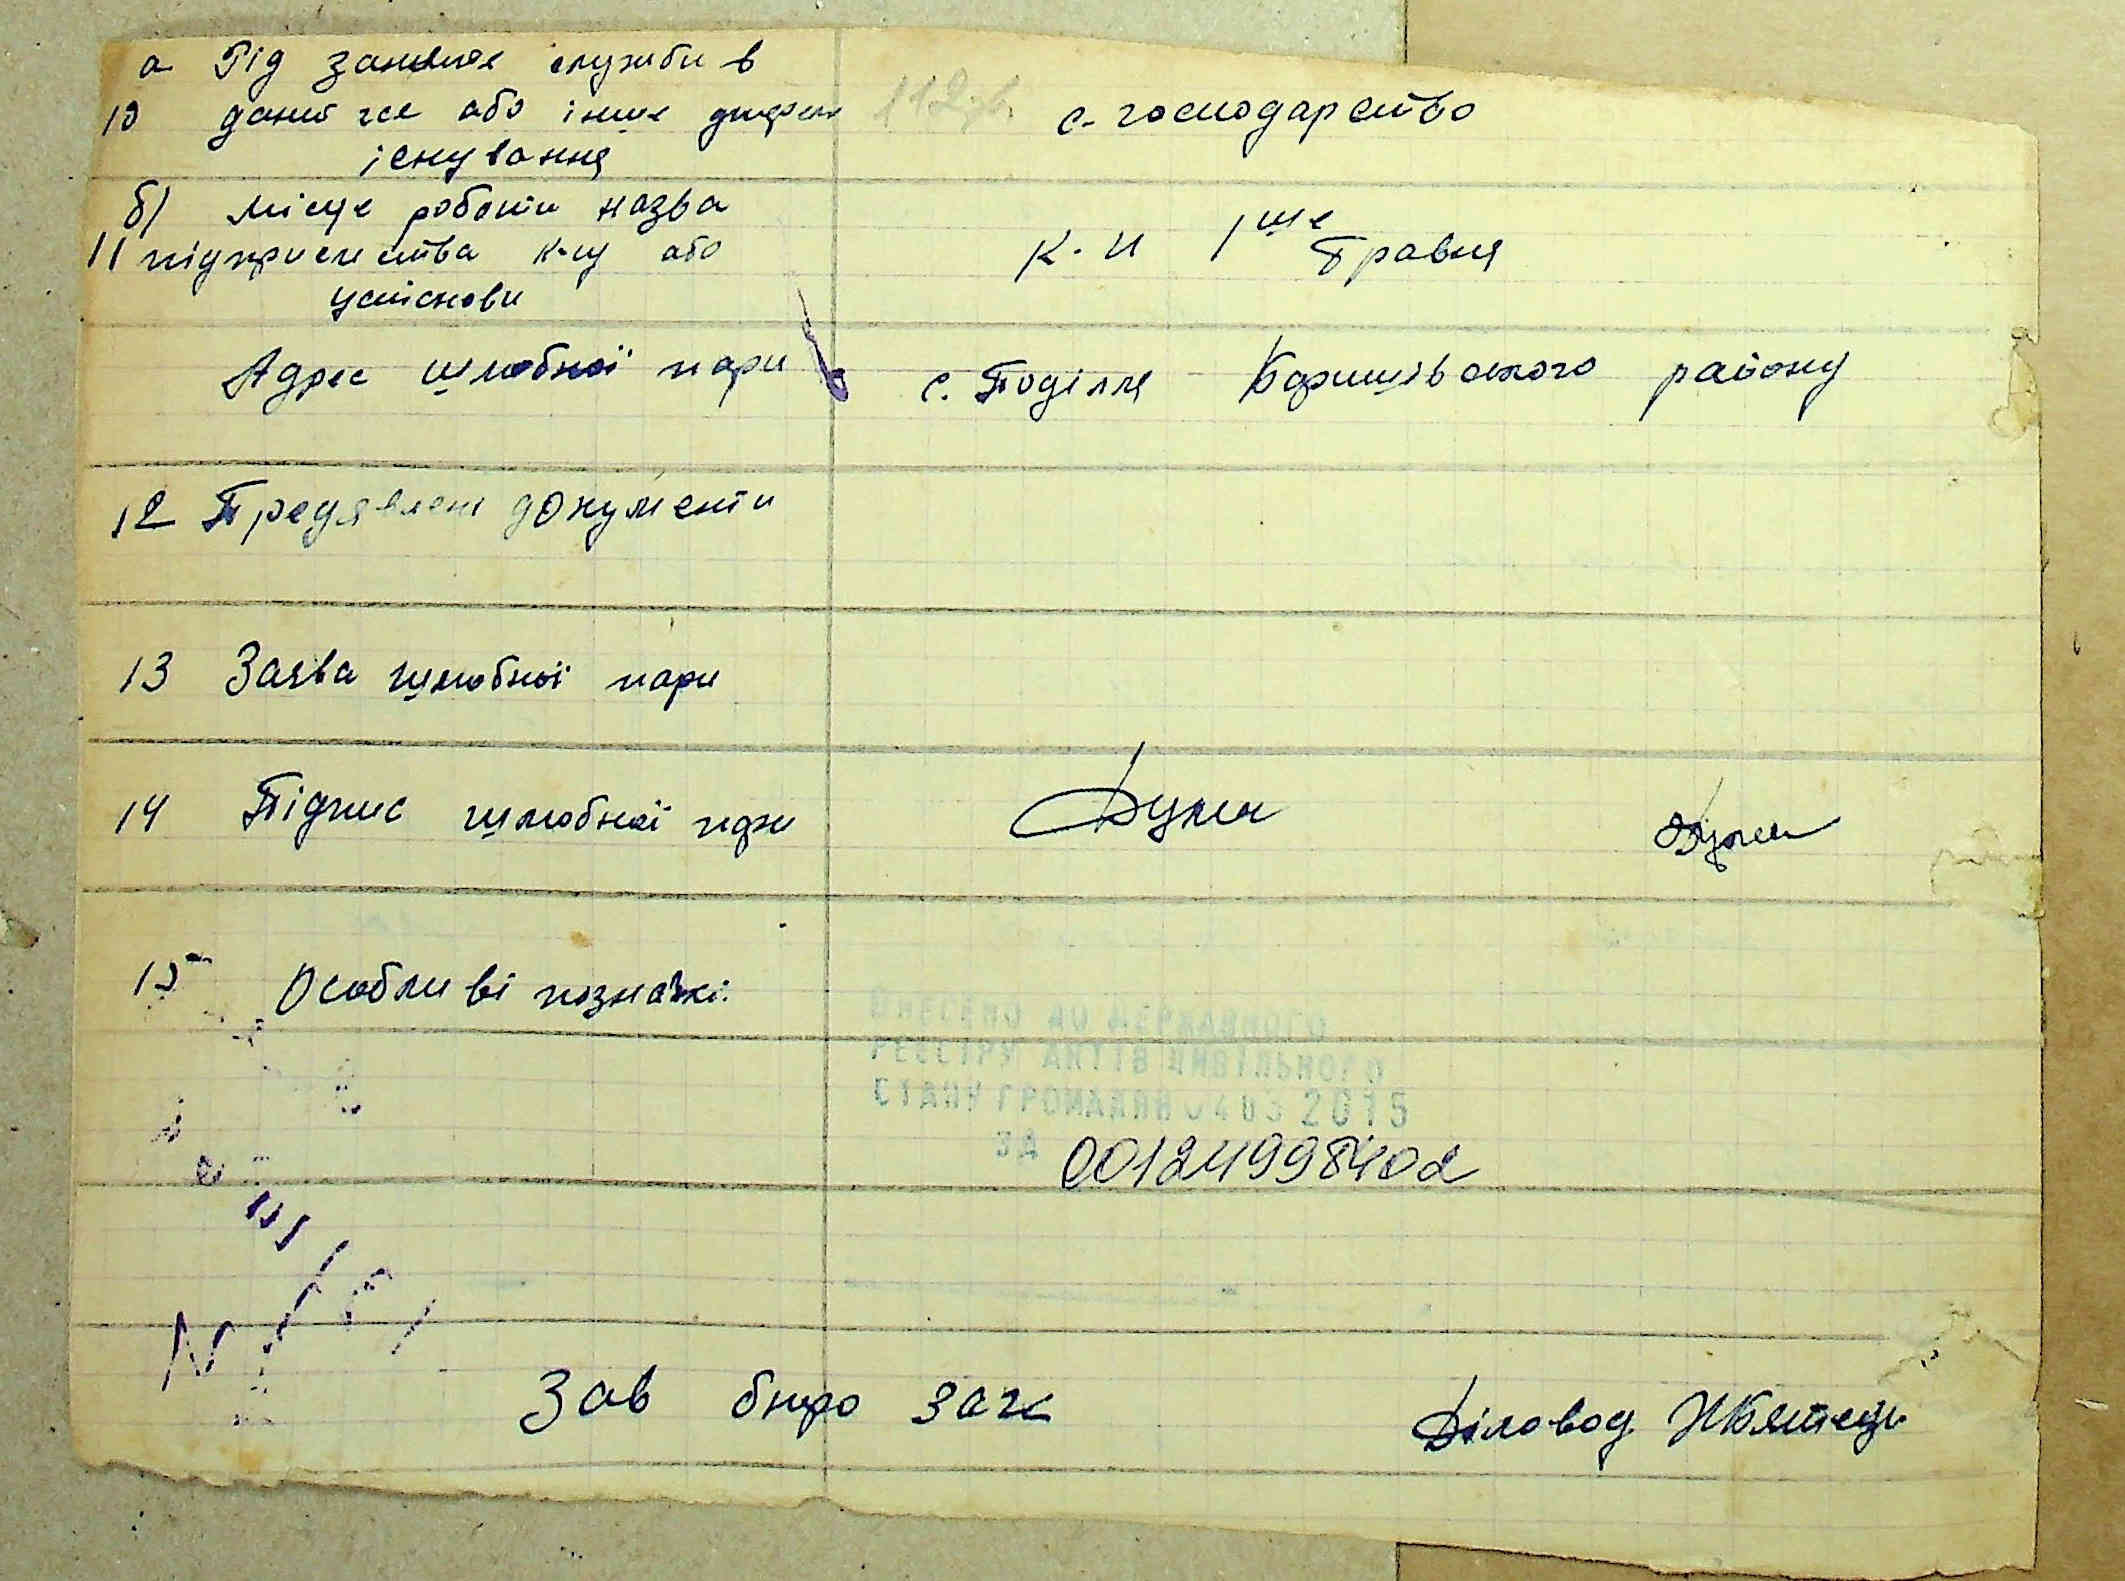 а Рід заняття служби в
10 даний час або інше джерело с-господарство
існування
б) місце роботи назва
11 підприємства к-пу або к-п 1ше Травня
установи
Адрес шлюбної пари с. Поділля Баришівського району
12 Предявлені документи
13 Заява шлюбної пари
14 Підпис шлюбної пари Дума Дума
15 Особливі познакі.
ВНЕСЕНО ДО ДЕРЖАВНОГО
РЕЄСТРУ АКТІВ ЦИВІЛЬНОГО
СТАНУ ГРОМАДЯН 04 03 2015
ЗА 00124998402
Зав бюро загс Діловод